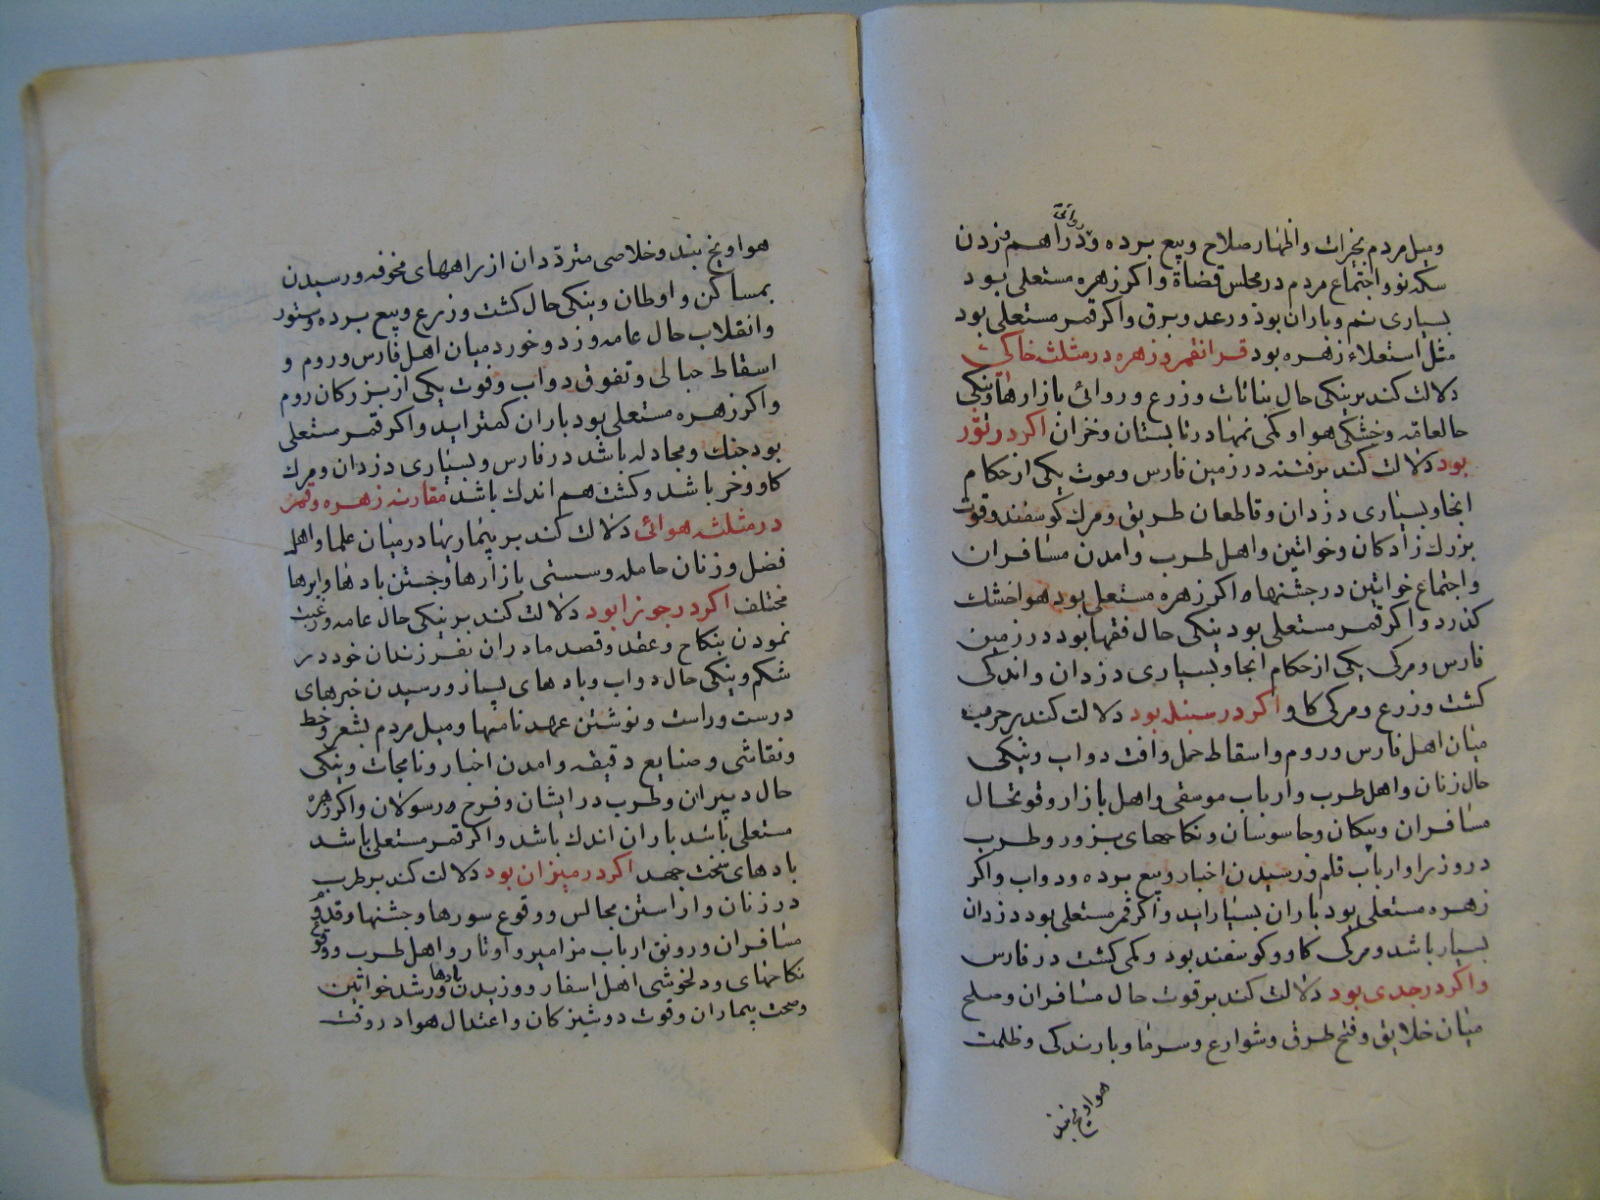 ومیل مردم بخیرات واظهار صلاح وبیع برده و روائی دراهم و زدن
سکه نو واجتماع مردم در مجلس قضاة واکر زهره مستعلی بود
بسیاری نم وباران بود و رعد وبرق واکر قمر مستعلی بود
مثل استعلاء زهره بود قرانقمر وزهره در مثلثه خاکی
دلالت کند بر نیکی حال نباتات وزرع وروائی بازارها ونیکی
حالعامه وخشکی هوا وکمی نمها در تابستان وخزان اکر در ثور
بود دلالت کند بر فتنه در زمین فارس وموت یکی از حکام
انجا وبسیاری دزدان وقاطعان طریق ومرك کوسفند وقوت
بزرك زادکان وخواتین واهل طرب وامدن مسافران
واجتماع خواتین در جشنها واکر زهره مستعلی بود هوا خشك
کذرد واکر قمر مستعلی بود نیکی حال فقها بود در زمین
فارس ومرکی یکی از حکام انجا وبسیاری دزدان واندکی
کشت وزرع ومرکی کاو واکر در سنبله بود دلالت کند بر حرب
میان اهل فارس وروم واسقاط حمل وافت دواب ونیکی
حال زنان واهل طرب وارباب موسقی واهل بازار وقوتحال
مسافران وپیکان وجاسوسان ونکاحهای بزور وطرب
در وزرا وارباب قلم ورسیدن اخبار وبیع برده ودواب واکر
زهره مستعلی بود باران بسیار اید واکر قمر مستعلی بود دزدان
بسیار باشد ومرکی کاو وکوسفند بود وکمی کشت در فارس
واکر در جدی بود دلالت کند بر قوت حال مسافران وصلح
میان خلایق وفتح طرق وشوارع وسرما وبارندکی وظلمت
هوا ویخ بند
هوا ویخ بند وخلاصی مترددان از راههای مخوفه ورسیدن
بمساکن واوطان ونیکی حال کشت وزرع وبیع برده وستور
وانقلاب حال عامه وزد وخورد میان اهل فارس وروم و
اسقاط حبالی وتفوق دواب وقوت یکی از بزرکان روم
واکر زهره مستعلی بود باران کمتر اید واکر قمر مستعلی
بود جنك ومجادله باشد در فارس وبسیاری دزدان ومرك
کاو وخر باشد وکشت هم اندك باشد مقارنه زهره وقمر
در مثلثه هوائی دلالت کند بر بیماریها در میان علما واهل
فضل وزنان حامله وسستی بازارها وجستن بادها وابرها
مختلف اکر در جوزا بود دلالت کند بر نیکی حال عامه ورغبت
نمودن بنکاح وعقد وقصد مادران بفرزندان خود در
شکم ونیکی حال دواب وبادهای بسیار ورسیدن خبرهای
درست وراست ونوشتن عهد نامها ومیل مردم بشعر وخط
ونقاشی وصنایع دقیقه وامدن اخبار ونامجات ونیکی
حال دبیران وطرب در ایشان وفرح ورسولان واکر زهره
مستعلی باشد باران اندك باشد واکر قمر مستعلی باشد
بادهای سخت جهد اکر در میزان بود دلالت کند بر طرب
در زنان واراستن مجالس ووقوع سورها وجشنها وقدوم
مسافران ورونق ارباب مزامیر واوتار واهل طرب ووقوع
نکاحهای ودلخوشی اهل اسفار ووزیدن بادها ورشد خواتین
وصحت بیماران وقوت دوشیزکان واعتدال هوا در وقت